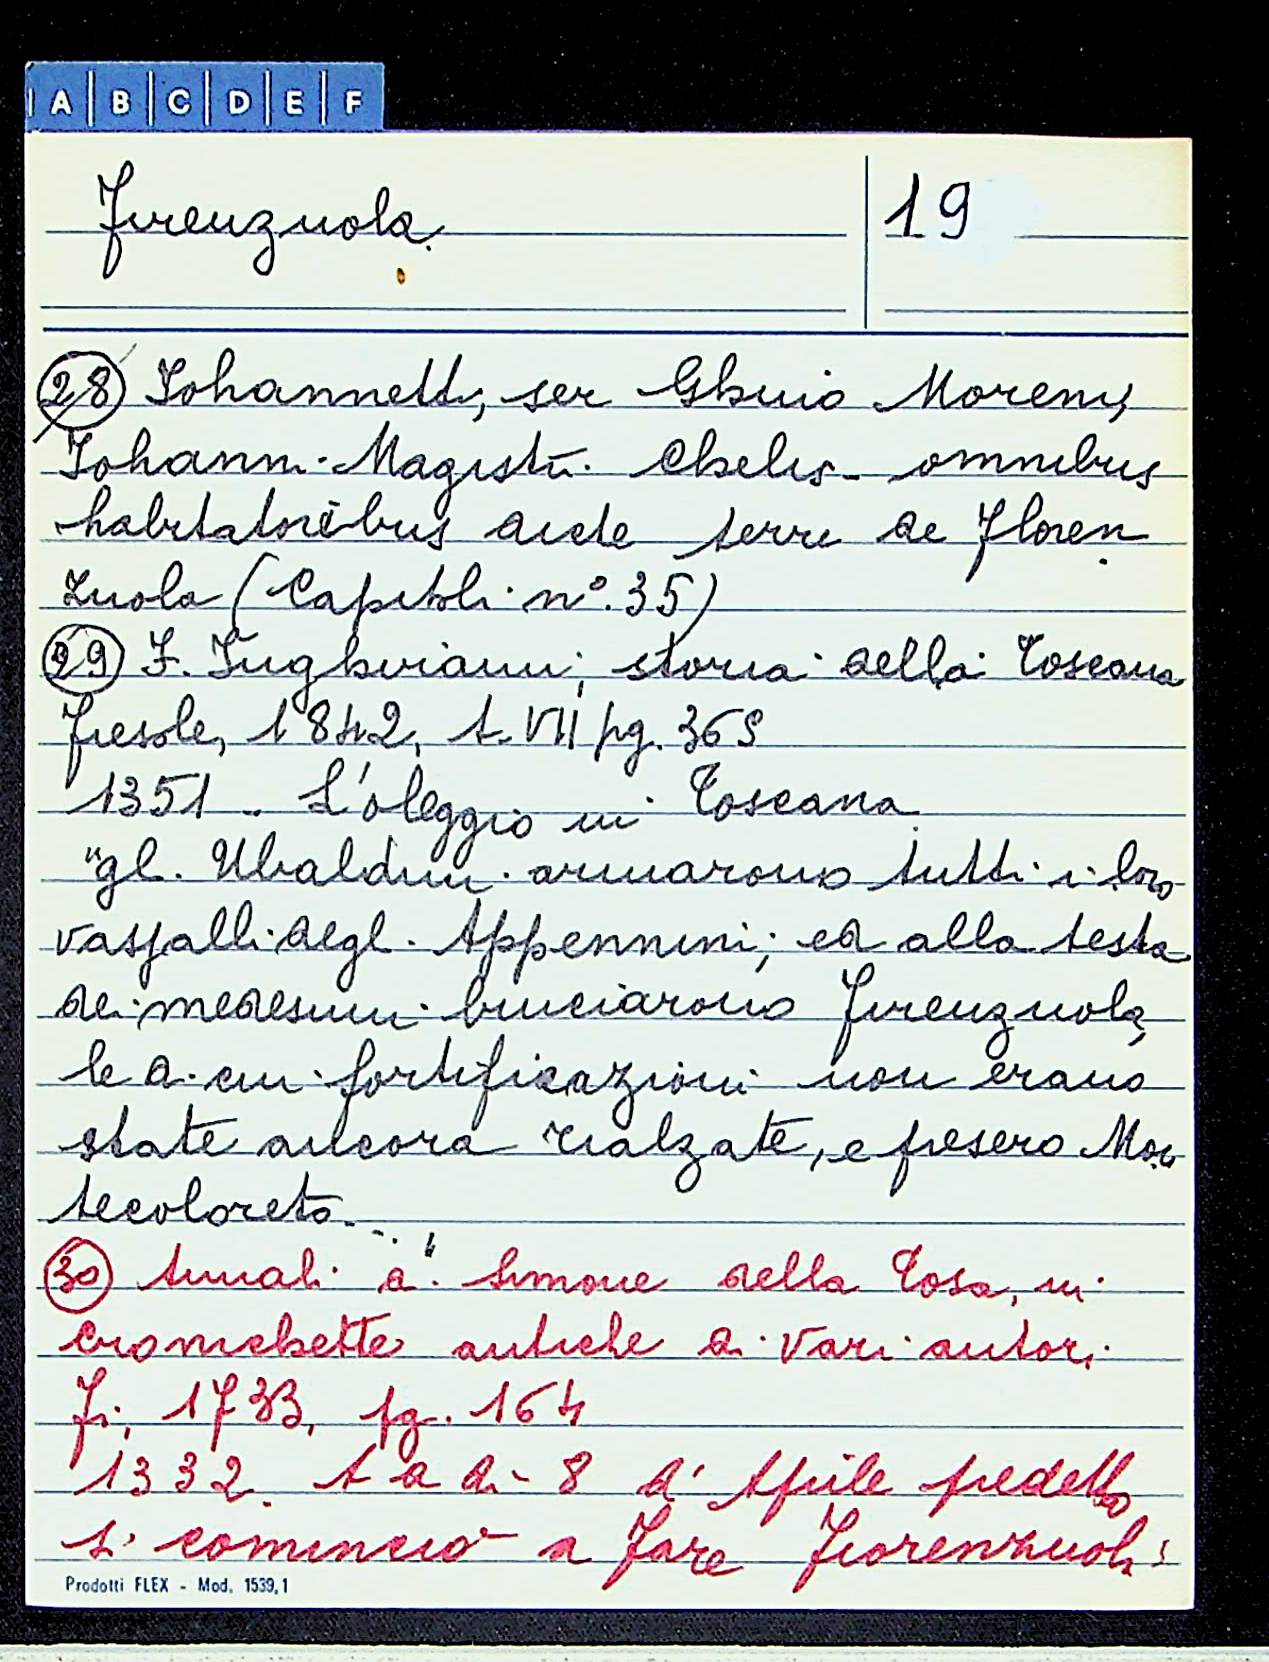 A B C D E F
Firenzuola. 19
28 Iohannetti, ser Ghino Moreni,
Iohanni Magistri Chelis omnibus
habitatoribus dicte terre de Floren
zuola (Capitoli n°. 35)
29 F. Inghirami, storia della Toscana
Fiesole, 1842, t. VII pg. 369
1351. L'oleggio in Toscana
"gli Ubaldini armarono tutti i loro
vassalli degli Appennini; ed alla testa
dei medesimi bruciarono Firenzuola,
le di cui fortificazioni non erano
state ancora rialzate, e presero Mon
tecoloreto...
30 Annali di Simone della Tosa, in
cronichette antiche di vari autori
Fi, 1733, pg. 164
1332. A dì 8 d'Aprile predetto
si cominciò a fare Fiorenzuola
Prodotti FLEX - Mod. 1539,1